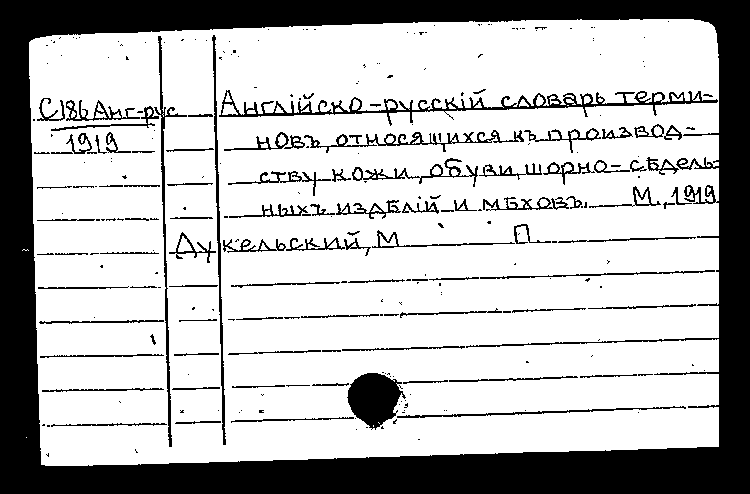 С186 Анг-рус Англійско-русскій словарь терми-
1919 новъ, относящихся къ производ-
ству кожи, обуви, шорно-сѣдель-
ныхъ издѣлій и мѣховъ. М., 1919
Дукельский, М П.